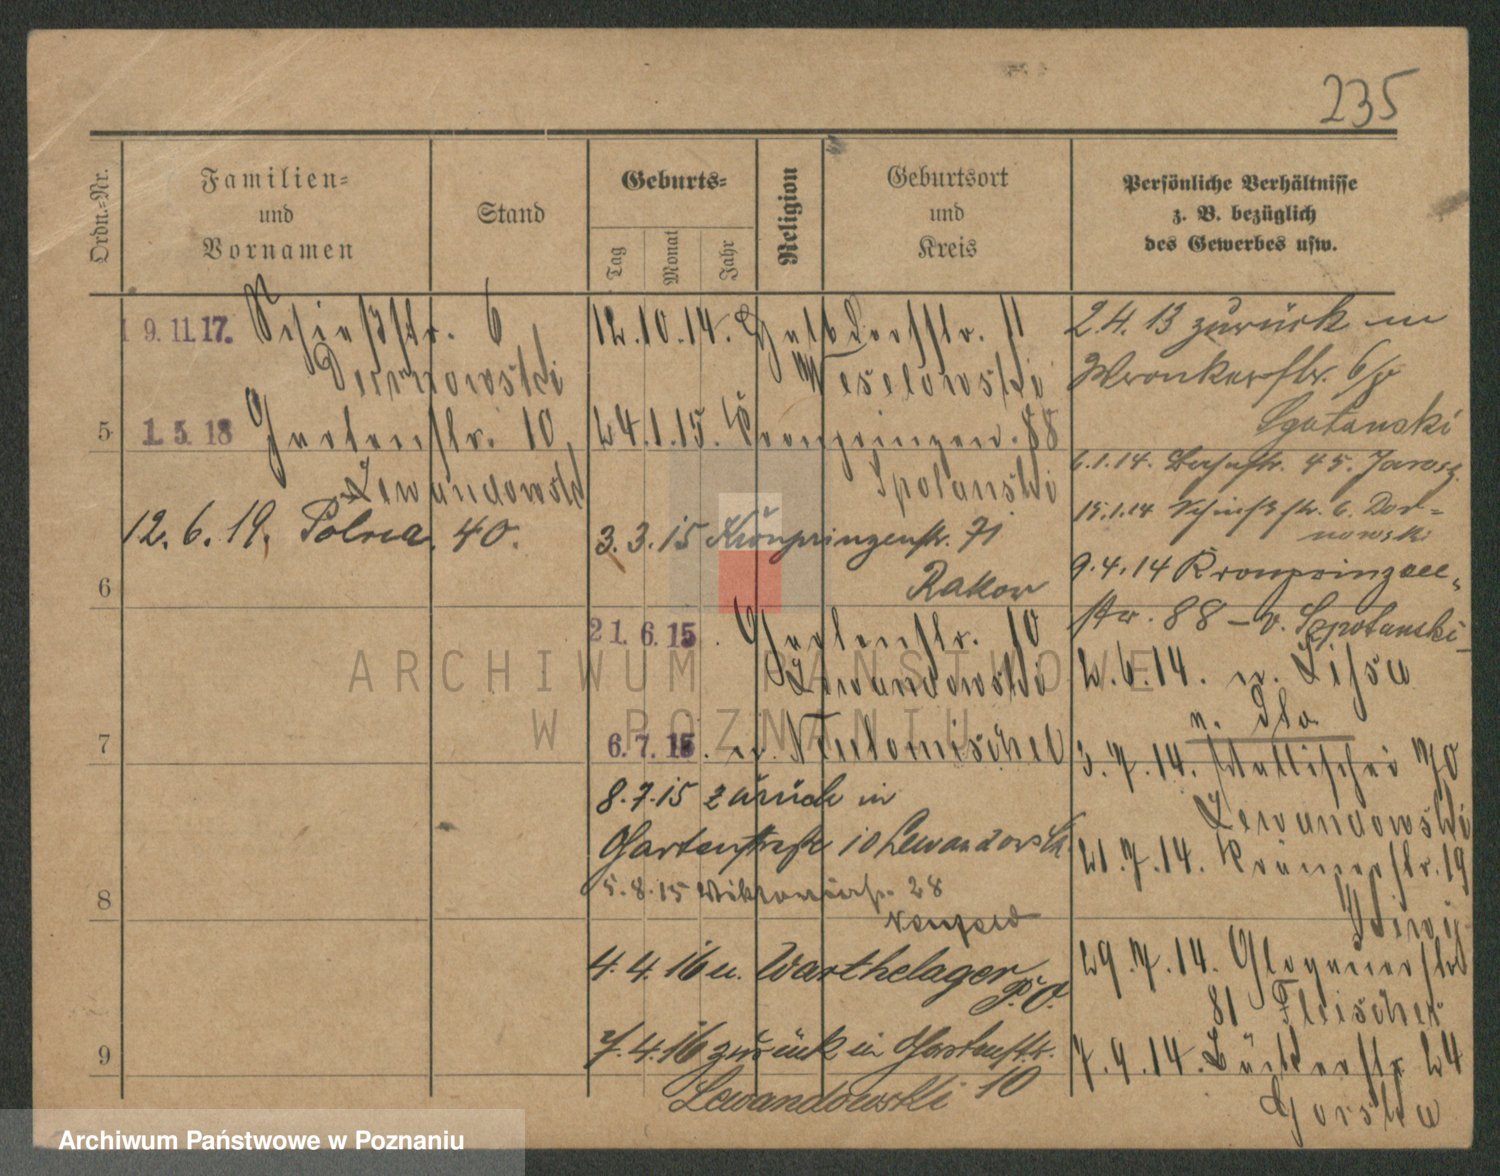 235
Ordn.-Nr.
Familien-
und
Vornamen
Stand
Geburts-
Tag
Monat
Jahr
Religion
Geburtsort
und
Kreis
Persönliche Verhältnisse
z. B. bezüglich
des Gewerbes usw.
19.11.17. Schießstr. 6
Dornowski
5
1.5.18 Gartenstr. 10
Lewandowski
12.6.19. Polna 40.
6
7
8
9
12.10.14.
str. 11
Weselowski
24.1.15. Kronprinzen. 88
Spotanski
3.3.15 Kronprinzenstr. 71
Rakow
21.6.15. Gartenstr. 10
Lewandowski
6.7.15. n. Neutomischel
8.7.15 zurück in
Gartenstraße 10 Lewandowski
5.8.15 28
4.4.16 u. Warthelager
P. O.
7.4.16 zurück in Gartenstr.
Lewandowski 10
2.4.13 zurück in
Wronkerstr. 6
6.1.14. 45. Jarosz
15.1.14 Schießstr. 6. Dor-
nowski
9.4.14 Kronprinzen-
str. 88 – v. Spotanski
2.6.14. n. Lissa
3.7.14. Wallischei 70
Lewandowski
21.7.14. Krämerstr. 19
29.7.14. Glogauerstr.
81 Fleischer
7.9.14. Bäckerstr. 24
Gorska
ARCHIWUM PAŃSTWOWE
W POZNANIU
Archiwum Państwowe w Poznaniu